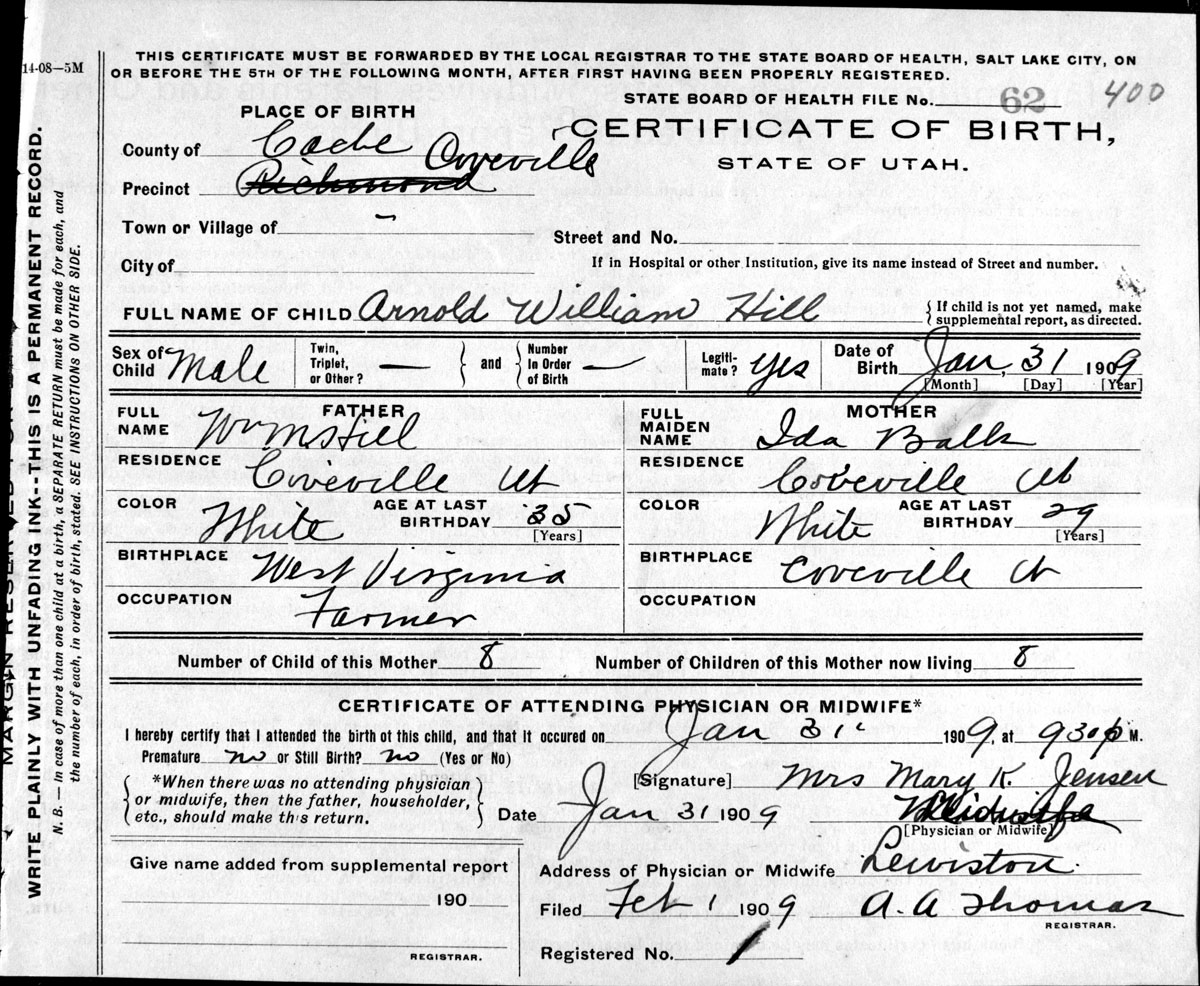 14-08—5M
THIS CERTIFICATE MUST BE FORWARDED BY THE LOCAL REGISTRAR TO THE STATE BOARD OF HEALTH, SALT LAKE CITY, ON
OR BEFORE THE 5TH OF THE FOLLOWING MONTH, AFTER FIRST HAVING BEEN PROPERLY REGISTERED.
STATE BOARD OF HEALTH FILE No. 62 400
PLACE OF BIRTH
CERTIFICATE OF BIRTH,
STATE OF UTAH.
County of Cache
Coveville
Precinct Richmond
Town or Village of -
Street and No.
City of
If in Hospital or other Institution, give its name instead of Street and number.
FULL NAME OF CHILD Arnold William Hill
{If child is not yet named, make
supplemental report, as directed.
Sex of Child Male
Twin, Triplet, or Other? —
and
Number In Order of Birth —
Legiti-mate? yes
Date of Birth Jan, 31 1909
[Month] [Day] [Year]
FATHER
FULL NAME Wm Hill
RESIDENCE Coveville Ut
COLOR White
AGE AT LAST BIRTHDAY 35
[Years]
BIRTHPLACE West Virginia
OCCUPATION Farmer
MOTHER
FULL MAIDEN NAME Ida
RESIDENCE Coveville Ut
COLOR White
AGE AT LAST BIRTHDAY 29
[Years]
BIRTHPLACE Coveville Ut
OCCUPATION
Number of Child of this Mother 8
Number of Children of this Mother now living 8
CERTIFICATE OF ATTENDING PHYSICIAN OR MIDWIFE*
I hereby certify that I attended the birth of this child, and that it occured on Jan 31 1909, at 930 p M.
Premature no or Still Birth? no (Yes or No)
*When there was no attending physician
or midwife, then the father, householder,
etc., should make this return.
[Signature] Mrs Mary K. Jensen
Date Jan 31 1909
Midwife
[Physician or Midwife]
Give name added from supplemental report
190
REGISTRAR.
Address of Physician or Midwife Lewiston.
Filed Feb 1 1909 A. A Thomas
REGISTRAR.
Registered No. 1
WRITE PLAINLY WITH UNFADING INK--THIS IS A PERMANENT RECORD.
N. B. — In case of more than one child at a birth, a SEPARATE RETURN must be made for each, and
the number of each, in order of birth, stated. SEE INSTRUCTIONS ON OTHER SIDE.